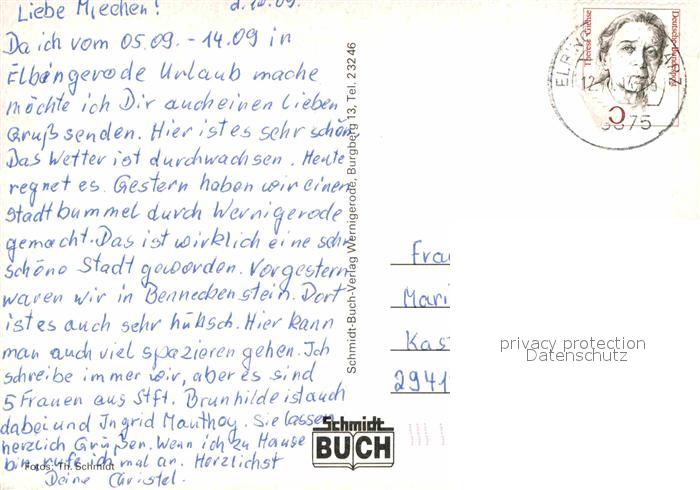 Liebe Miechen! d. 10.09.
Da ich vom 05.09. - 14.09 in
Elbingerode Urlaub mache
möchte ich Dir auch einen lieben
Gruß senden. Hier ist es sehr schön
Das Wetter ist durchwachsen. Heute
regnet es. Gestern haben wir einen
Stadtbummel durch Wernigerode
gemacht. Das ist wirklich eine sehr
schöne Stadt geworden. Vorgestern
waren wir in Benneckenstein. Dort
ist es auch sehr hübsch. Hier kann
man auch viel spazieren gehen. Ich
schreibe immer wir, aber es sind
5 Frauen aus Stft. Brunhilde ist auch
dabei und Ingrid Manthey. Sie lassen
herzlich Grüßen. Wenn ich zu Hause
bin rufe ich mal an. Herzlichst
Deine Christel.
Fotos: Th. Schmidt
Schmidt-Buch-Verlag Wernigerode, Burgberg 13, Tel. 23246
Schmidt
BUCH
Therese Giehse
Deutsche Bundespost
3875
Frau
Mari
Kas
2941
privacy protection
Datenschutz